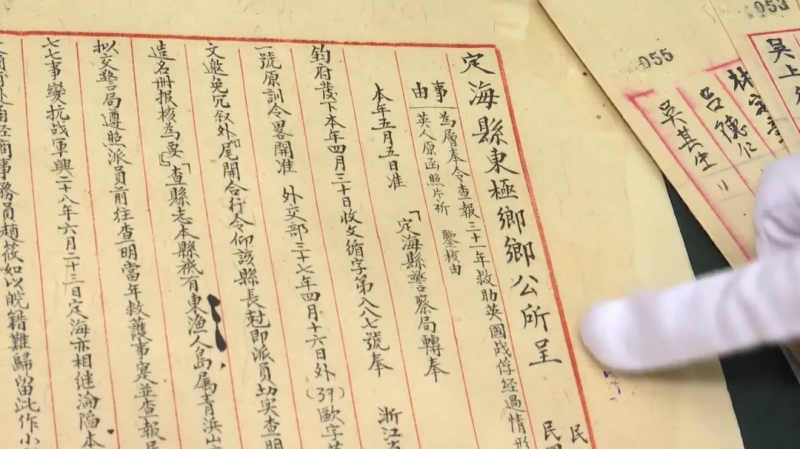 定海縣東極鄉鄉公所呈
事由
為層奉令查報三十一年救助英國战俘经過情形
英人原函照片祈 鑒核由
本年五月五日准
「定海縣警察局轉奉 浙江
鈞府發下本年四月三十日收文循字第八八七號奉
一號原訓令畧開准 外交部三十七年四月十六日外(37)歐字
文邀免冗叙外「尾開合行令仰該縣長尅即派員切实查明
造名冊报核為要」查縣志本縣祇有東漁人島属青浜山
拟交警局遵照派員前往查明當年救護事实並查報
七七事變抗战軍興二十八年六月二十三日定海亦相继淪陥本
商事務員趙筱如以皖籍難歸留此作小
民
民
055
053
吳其生
呂德仁
吳上